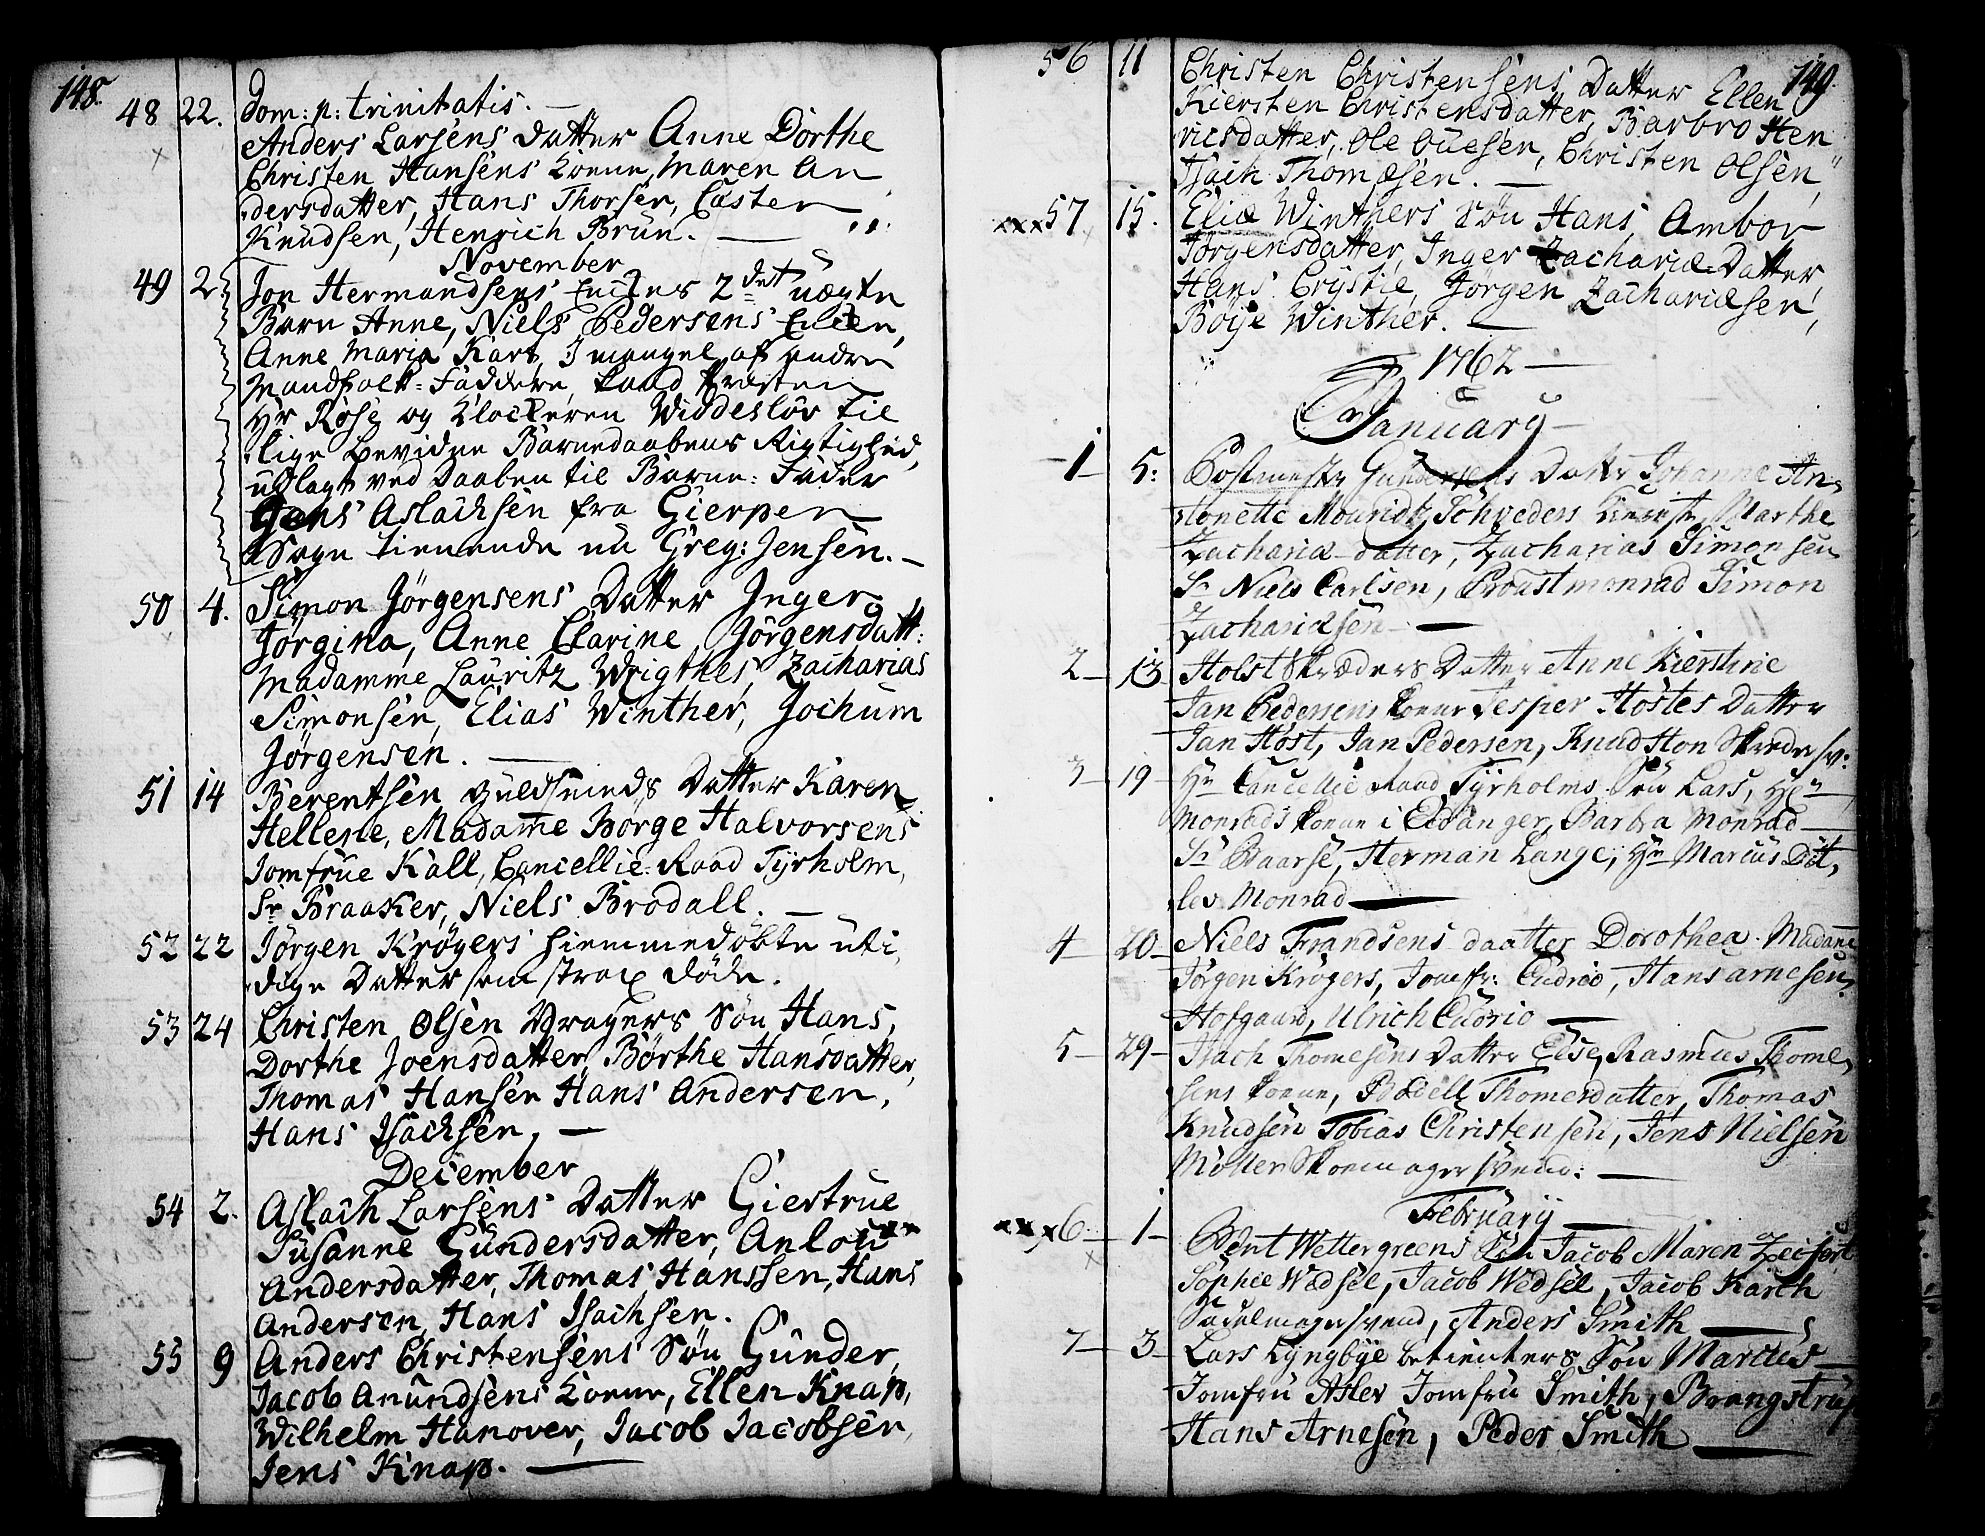 148.
48 22. Dom: p: trinitatis. —
Anders Larsens Datter Anne Dorthe
Christen Hansens Konne, Maren An
dersdatter, Hans Thorsen, Casten
Knudsen, Henrich Brun. —
November
49 2. Jon Hermandsens Enckes 2det uægte
Barn Anne, Niels Pedersens Encken,
Anne Maria Kart, I mangel af andre
Mandfolk-Faddere, stood Præsten
Hr Rose og Klockeren Widdesløv til
lige bevidne Barnedaabens Rigtighed,
udlagt ved Daaben til Barne-Fader
Jens Aslachsen fra Gierpen
Sogn tienende nu Greg: Jensen. —
50 4. Simon Jörgensens Datter Inger
Jörgina, Anne Clarine Jörgensdatt:
Madamme Lauritz Wrigthes, Zacharias
Simonsen, Elias Winther, Jochum
Jörgensen. —
51 14 Berentsen Guldsmeds Datter Karen
Hellene, Madame Börge Halvorsens
Jomfrue Kall, Cancellie-Raad Tyrholm,
Sr Braaker, Niels Brodall. —
52 22 Jörgen Krøyers hiemmedøbte uti
dige Datter som strax døde.
53 24 Christen Olsen Dragers Søn Hans,
Dorthe Joensdatter, Börthe Hansdatter,
Thomas Hansen Hans Andersen,
Hans Isachsen. —
December
54 2. Aslach Larsens Datter Giertrue
Susanne Gundersdatter, Anlou
Andersdatter, Thomas Hanssen, Hans
Andersen, Hans Isachsen.
55 9 Anders Christensens Søn Gunder,
Jacob Anundsens Konne, Ellen Knap,
Wilhelm Hanover, Jacob Jacobsen,
Jens Knap. —
149.
56 11 Christen Christensens Datter Ellen
Kiersten Christensdatter, Barbro Hen
ricsdatter, Ole Ouesen, Christen Olsen,
Isach Thomesen. —
xxx 57 15. Eliæ Winthers Søn Hans, Ambor
Jörgensdatter, Inger Zachariæ-Datter,
Hans Crystie, Jörgen Zachariæsen,
Böye Winther. —
1762 —
January —
1 5: Postmester Gundersens Datter Johanne An
tonette Mouridtz Schrøders Marthe
Zachariæ-datter, Zacharias Simonsen
Sr Niels Carlsen, Proustmonrad Simon
Zachariæsen —
2 13 Holst Skræders Datter Anne Kierstine
Jan Pedersens Konne Jesper Hostes Datter
Jan Høst, Jan Pedersen, Knud Hon Skræder sv:
3 19 Hr Cancellie Raad Tyrholms Søn Lars, Hr
Monrads Konne i Eidanger, Barbra Monrad
Sr Baarse, Herman Lange, Hr Marcus Dit,
lev Monrad —
4 20 Niels Frandsens daatter Dorothea. Madame
Jörgen Krögers, Jomfr: Cudrio, Hans arnesen
Hofgaard, Ulrich Cudrio —
5 29 Isach Thomesens Datter Else, Rasmus Thome
sens Konne, Bodell Thomesdatter, Thomas
Knudsen Tobias Christensen, Jens Nielsen
Möller Skoemager svend: —
February —
xxx 6 1 Bent Wettergreens Søn Jacob Maren Zeisert
Sophie Wedsel, Jacob Wedsel, Jacob Karch
Sadelmagersvend, Anders Smith —
7 3 Lars Lyngbye betienters Søn Marcus —
Jomfru Asler Jomfru Smith, Brangstrup
Hans Arnesen, Peder Smith —